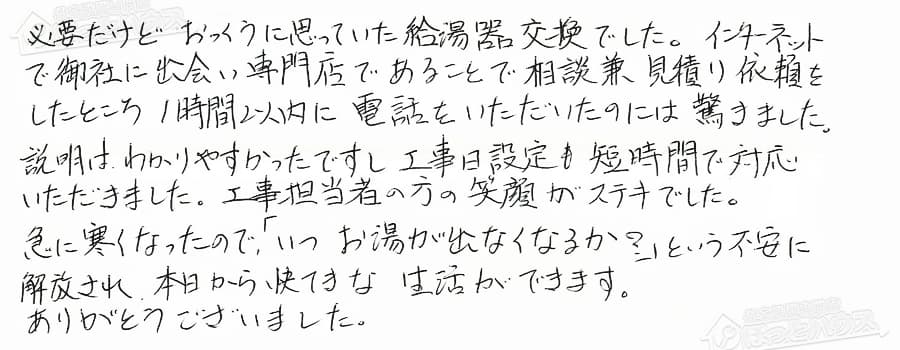 必要だけど おっくうに思っていた給湯器交換でした。インターネット
で御社に出会い専門店であることで相談兼見積り依頼を
したところ 1時間以内に 電話をいただいたのには 驚きました。
説明は、わかりやすかったですし工事日設定も短時間で対応
いただきました。工事担当者の方の笑顔がステキでした。
急に寒くなったので、「いつ お湯が出なくなるか?」という不安に
解放され、本日から快てきな 生活ができます。
ありがとうございました。